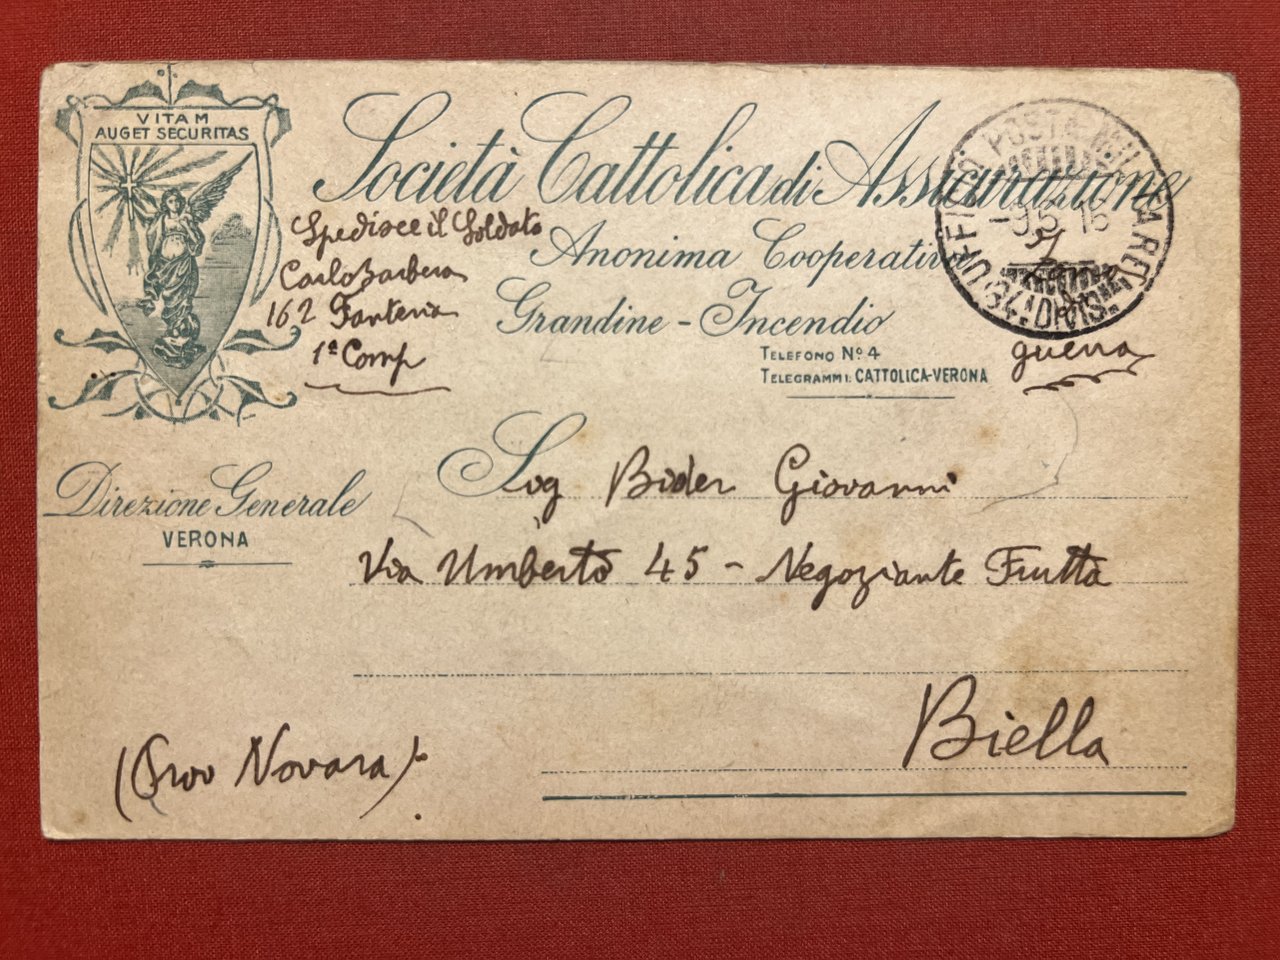 VITAM
AUGET SECURITAS
Società Cattolica di Assicurazione
Anonima Cooperativa
Grandine - Incendio
TELEFONO Nº 4
TELEGRAMMI: CATTOLICA-VERONA
UFFICIO POSTA MILITARE
34ª DIVIS.
-9.5.16
Spedisce il Soldato
Carlo Barbera
162 Fanteria
1ª Comp
guerra
Direzione Generale
VERONA
Sig Bider Giovanni
Via Umberto 45 - Negoziante Frutta
Biella
(Prov Novara).